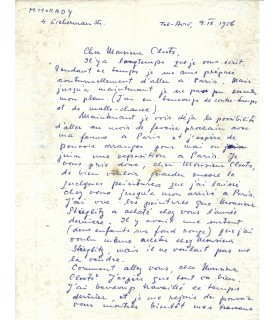 M. MOKADY
4. Lieberman str.
Tel-Aviv, 9.IX.1956
Cher Monsieur Cloots,
Il y a longtemps que je vous écrit.
Pendant ce temps je me suis préparé
continuellement d'aller à Paris. Mais
jusqu'a maintenant je ne pas pu
mon plan. (J'ai eu beaucoup de contre-temps
et de malle-chance).
Maintenant je vois déjà la posibilité
d'aller au mois de fevrier prochain avec
ma femme à Paris et j'espère de
pouvoir arranger pour mai ou
juin une exposition à Paris. Je
vous prie donc, cher Monsieur Cloots,
de bien vouloir garder encore les
quelques peintures que j'ai laissé
chez vous jusqu'à mon arrivé à Paris.
J'ai vue les peintures que Monsieur
Stieglitz a acheté chez vous l'année
dernière. Il y avait une surtout
(deux enfants sur fond rouge) que j'ai
voulu même acheter chez Monsieur
Stieglitz, mais il ne voulait pas me
la vendre.
Comment allez vous, cher Monsieur
Cloots? J'espère que tout va bien.
J'ai beaucoup travaillé ce temps
dernier et je me rejouis de pouvoir
vous montrer bientôt mes travaux